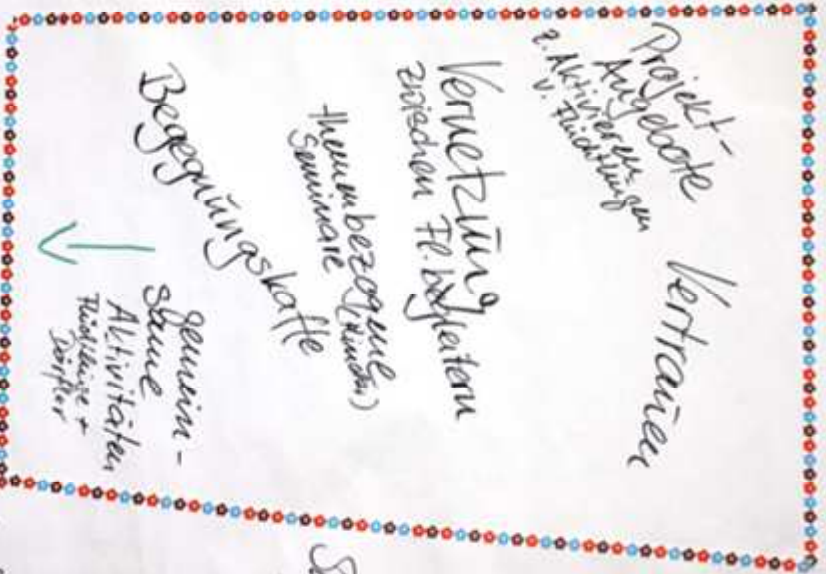 Projekt-
Angebote
z. Aktivieren
v. Flüchtlingen
Vertrauen
Vernetzung
zwischen Fl.begleitern
themenbezogene
Seminare (Kinder)
Begegnungskaffe
gemein-
same
Aktivitäten
Flüchtlinge +
Dörfler